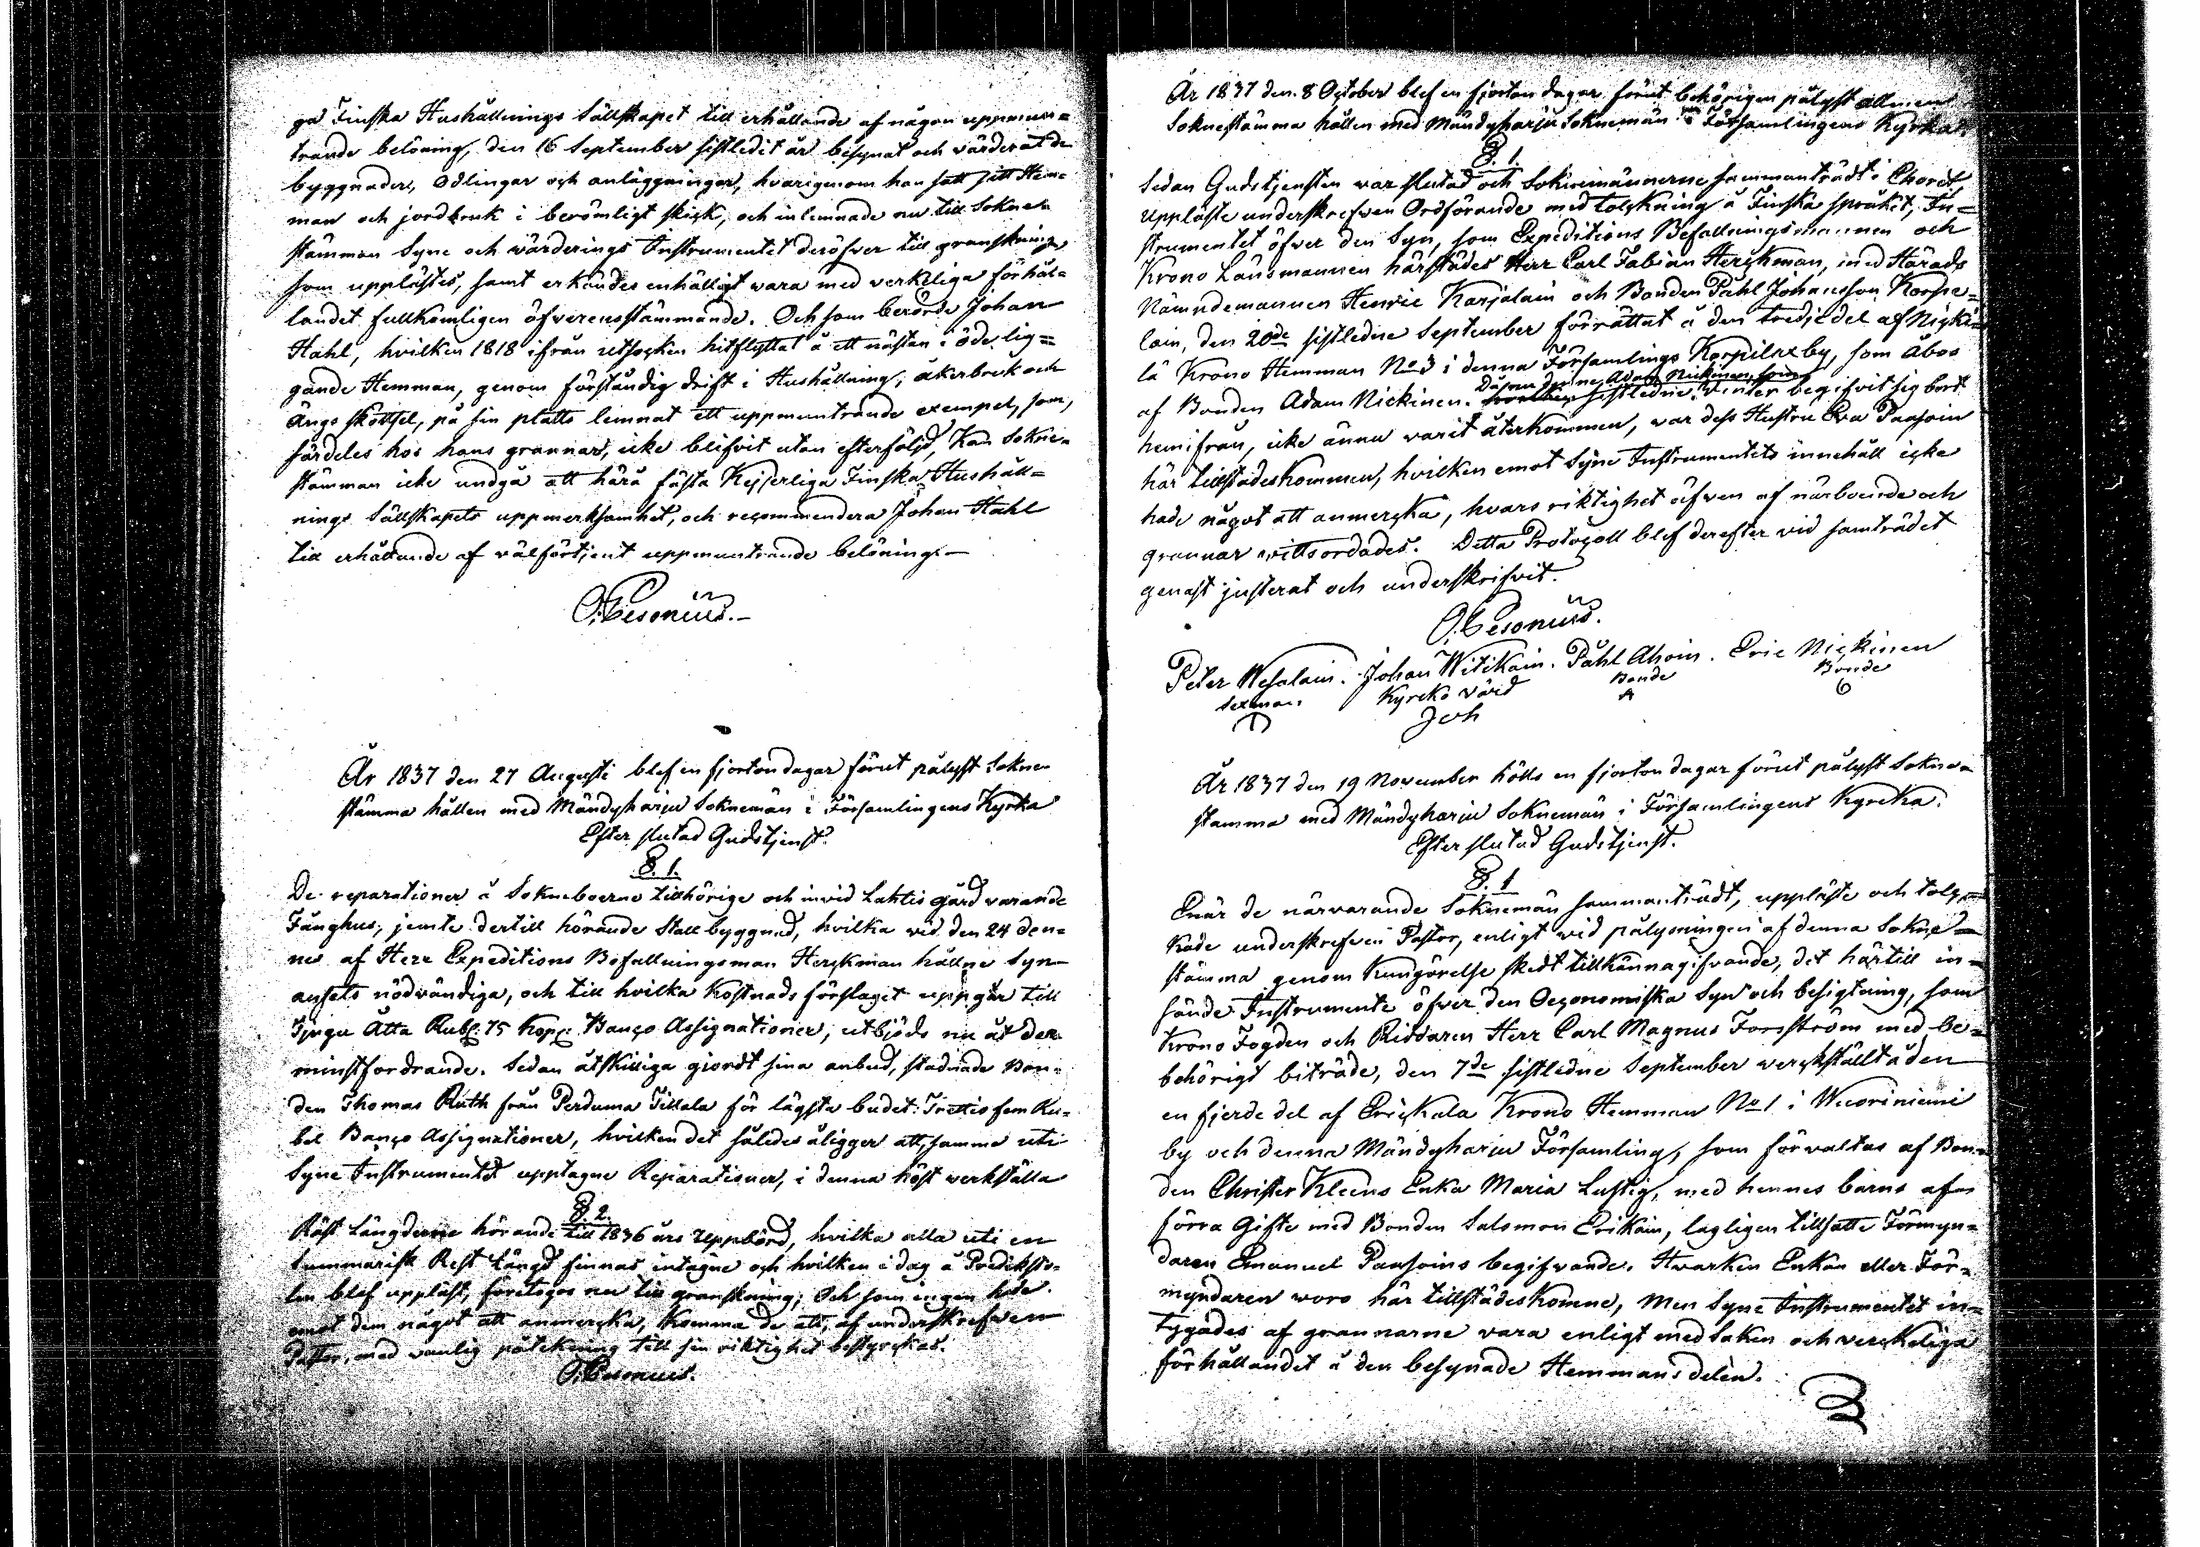 ga Finska Hushållnings Sällskapet till erhållande af någon uppmun=
trande belöning, den 16 September sistledit år besynat och värderat de
byggnader, Odlingar och anläggningar, hvarigenom han satt sitt Hem=
man och jordbruk i berömligt skick, och inlemnade nu till Sokne=
stämman Syne och wärderings Instrumentet deröfver till granskning
som upplästes, samt erkändes enhälligt vara med verkeliga förhål=
landet fullkomligen öfverensstämmande. Och som berörde Johan
Ståhl, hvilken 1818 ifrån utsocken hitflyttat å ett nästan i öde lig=
gande Hemman, genom förståndig drift i Hushållning, åkerbruk och
Ängs skötsel, på sin platts lemnat ett uppmuntrande exempel, som,
särdeles hos hans grannar, icke blifvit utan efterföljd, kan Sokne=
stämman icke undgå att härå fästa Kejserliga Finska Hushåll=
nings Sällskapets uppmerksamhet, och recommendera Johan Ståhl
till erhållande af välförtjent uppmuntrande belöning.—
O. Cesonius.—
År 1837 den 27 Augusti blef en fjorton dagar förut pålyst Sokne=
stämma hållen med Mändyharju Soknemän i Församlingens Kyrka
Efter slutad Gudstjenst.
§. 1.
De reparationer å Sokneboerne tillhörige och invid Lahtis gård varande
Fånghus, jemte dertill hörande Stall byggnad, hvilka vid den 24 den=
nes af Herr Expeditions Befallningsman Herckman hållne Syn
ansets nödvändiga, och till hvilka Kostnads förslaget uppgår till
Tjugu Åtta Rub. 75 Kop. Banco Assignationer, utbjöds nu åt den
minstfordrande. Sedan åtskilliga giordt sina anbud, stadnade Bon=
den Thomas Ruth från Perduma Tillala för lägsta budet: Trettio fem Ru=
bel Banco Assignationer, hvilken det således åligger att, samma uti
Syne Instrumentet upptagne Reparationer, i denna höst werkställa
§ 2.
Råst Längderne hörande till 1836 års Uppbörd, hvilka alla uti en
Summarisk Rest Längd finnas intagne och hvilken i dag å Prediksto=
len blef uppläst, företogos nu till granskning; Och som ingen hade
emot dem något att anmerka, komma de att, af underskrefven
Pastor, med vanlig påtekning till sin riktighet bestyrckas.
O. Cesonius.
År 1837 den 8 October blef en fjorton dagar förut behörigen pålyst allmen
Soknestämma hållen med Mändyharju Soknemän i Församlingens Kyrka
§. 1.
Sedan Gudstjensten var slutad och Soknemännerne sammanträdt i Choret
uppläste underskrefven Ordförande med tolckning å Finska språket, In=
strumentet öfver den Syn, som Expeditions Befallningsmannen och
Krono Länsmannen härstädes Herr Carl Fabian Herckman, med Härads
Nämndemannen Henric Karjalain och Bonden Påhl Johansson Korpe=
lain, den 20de sistledne September förrättat å den tredjedel af Nicki=
lä Krono Hemman No 3 i denna Församlings Karpilax by, som åbos
af Bonden Adam Nickinen. Då som denne Adam Nickinen, som
sistledne Vinter begifvit sig bort
hemifrån, icke ännu varit återkommen, var dess Hustru Eva Paasoin
här tillstädeskommen, hvilken emot Syne Instrumentets innehåll icke
hade något att anmercka, hvars riktighet äfven af närboende och
grannar wittsordades. Detta Protocoll blef derefter vid samträdet
genast justerat och underskrifvit.
O. Cesonius.
Peter Wesalain. Johan Witikain. Påhl Ahoin. Eric Nickinen
Sexman. Kyrko värd Bonde Bonde
Joh
År 1837 den 19 November hölls en fjorton dagar förut pålyst Sokne=
stämma med Mändyharju Soknemän i Församlingens Kyrcka.
Efter slutad Gudstjenst.
§. 1
Enär de närvarande Soknemän sammanträdt, uppläste och tolc=
kade underskrefven Pastor, enligt vid pålysningen af denna Sokne=
stämma genom Kungörelse skedt tillkännagifvande, det härtill in=
sände Instrumente öfver den Oeconomiska Syn och besigtning, som
Krono Fogden och Riddaren Herr Carl Magnus Forsström med be=
hörigt biträde, den 7de sistledne September werckställt å den
en fjerde del af Erickala Krono Hemman No 1 i Wuoriniemi
by och denna Mändyharju Församling, som förvaltas af Bon=
den Christer Kleens Enka Maria Lustig, med hennes barns af
förra Gifte med Bonden Salomon Erikäin, lagligen tillsatte Förmyn=
daren Emanuel Paasoins begifvande. Hvarken Enkan eller För=
myndaren woro här tillstädeskomne, Men Syne Instrumentet in=
tygades af grannarne vara enligt med Saken och verckeliga
förhållandet å den besynade Hemmans delen.